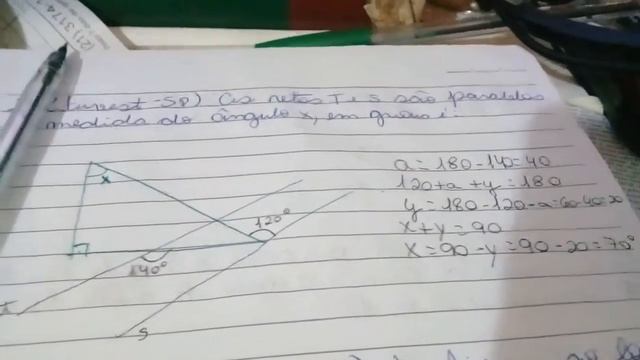 (21) 3174-
(Funrest-SP) As retas T e s são paralelas
medida do ângulo x, em graus é:
a = 180 - 140 = 40
120 + a + y = 180
y = 180 - 120 - a = 60 - 40 = 20
x + y = 90
x = 90 - y = 90 - 20 = 70°
x
120°
140°
s